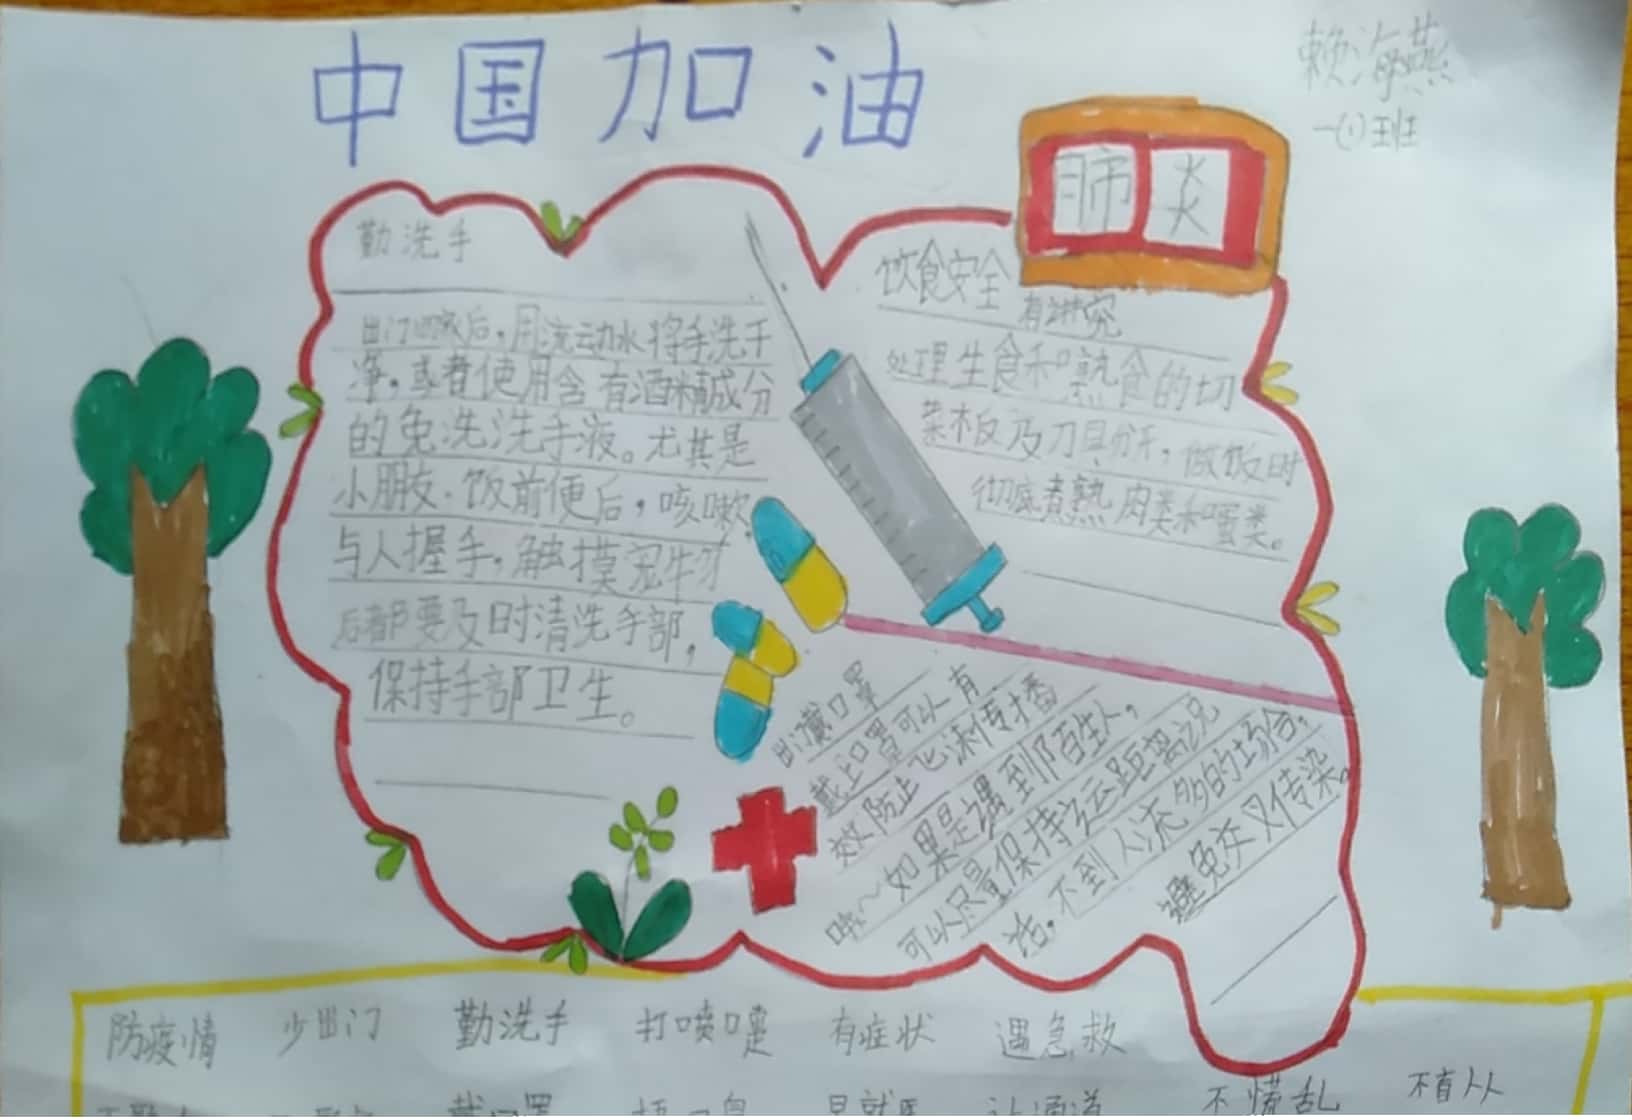 中国加油
赖海燕
一(1)班
肺炎
勤洗手
出门回家后，用流动水将手洗干
净，或者使用含有酒精成分
的免洗洗手液。尤其是
小朋友，饭前便后，咳嗽，
与人握手，触摸宠牛牙
后都要及时清洗手部，
保持手部卫生。
饮食安全
有讲究
处理生食和熟食的切
菜板及刀具分开，做饭时
彻底煮熟肉类和蛋类。
出门戴口罩
戴上口罩可以有
效防止飞沫传播
哦～如果是遇到陌生人，
可以尽量保持距离说
话，不到人流多的场合，
避免交叉传染。
防疫情 少出门 勤洗手 打喷嚏 有症状 遇急救
戴口罩 捂口鼻 早就医 让通道 不慌乱 不盲从